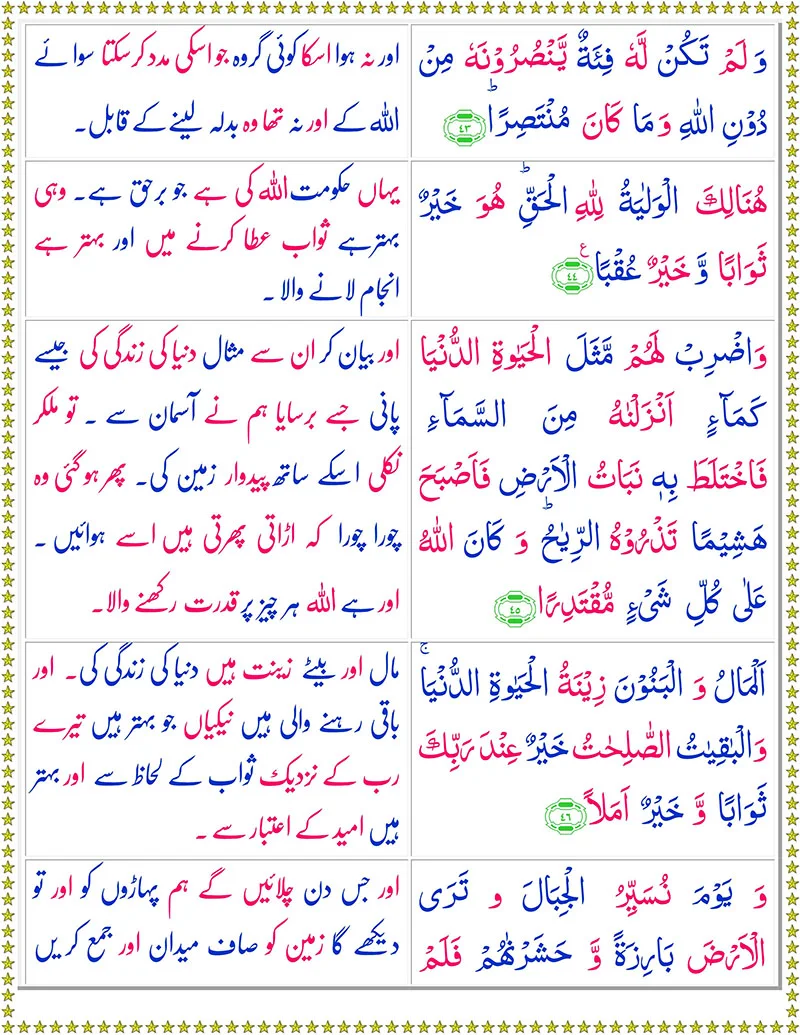 وَ لَمْ تَكُنْ لَّهٗ فِئَةٌ يَّنْصُرُوْنَهٗ مِنْ
دُوْنِ اللّٰهِ وَ مَا كَانَ مُنْتَصِرًاؕ ۴۳
اور نہ ہوا اسکا کوئی گروہ جو اسکی مدد کر سکتا سوائے
اللہ کے اور نہ تھا وہ بدلہ لینے کے قابل۔
هُنَالِكَ الْوَلَايَةُ لِلّٰهِ الْحَقِّؕ هُوَ خَيْرٌ
ثَوَابًا وَّ خَيْرٌ عُقْبًا ۴۴ ع
یہاں حکومت اللہ کی ہے جو برحق ہے۔ وہی
بہتر ہے ثواب عطا کرنے میں اور بہتر ہے
انجام لانے والا۔
وَاضْرِبْ لَهُمْ مَّثَلَ الْحَيٰوةِ الدُّنْيَا
كَمَآءٍ اَنْزَلْنٰهُ مِنَ السَّمَآءِ
فَاخْتَلَطَ بِهٖ نَبَاتُ الْاَرْضِ فَاَصْبَحَ
هَشِيْمًا تَذْرُوْهُ الرِّيٰحُؕ وَ كَانَ اللّٰهُ
عَلٰى كُلِّ شَىْءٍ مُّقْتَدِرًا ۴۵
اور بیان کر ان سے مثال دنیا کی زندگی کی جیسے
پانی جسے برسایا ہم نے آسمان سے ۔ تو ملکر
نکلی اسکے ساتھ پیدوار زمین کی۔ پھر ہو گئی وہ
چورا چورا کہ اڑاتی پھرتی ہیں اسے ہوائیں ۔
اور ہے اللہ ہر چیز پر قدرت رکھنے والا۔
اَلْمَالُ وَ الْبَنُوْنَ زِيْنَةُ الْحَيٰوةِ الدُّنْيَاۚ
وَالْبٰقِيٰتُ الصّٰلِحٰتُ خَيْرٌ عِنْدَ رَبِّكَ
ثَوَابًا وَّ خَيْرٌ اَمَلًا ۴۶
مال اور بیٹے زینت ہیں دنیا کی زندگی کی۔ اور
باقی رہنے والی ہیں نیکیاں جو بہتر ہیں تیرے
رب کے نزدیک ثواب کے لحاظ سے اور بہتر
ہیں امید کے اعتبار سے ۔
وَ يَوْمَ نُسَيِّرُ الْجِبَالَ وَ تَرَى
الْاَرْضَ بَارِزَةً وَّ حَشَرْنٰهُمْ فَلَمْ
اور جس دن چلائیں گے ہم پہاڑوں کو اور تو
دیکھے گا زمین کو صاف میدان اور جمع کریں